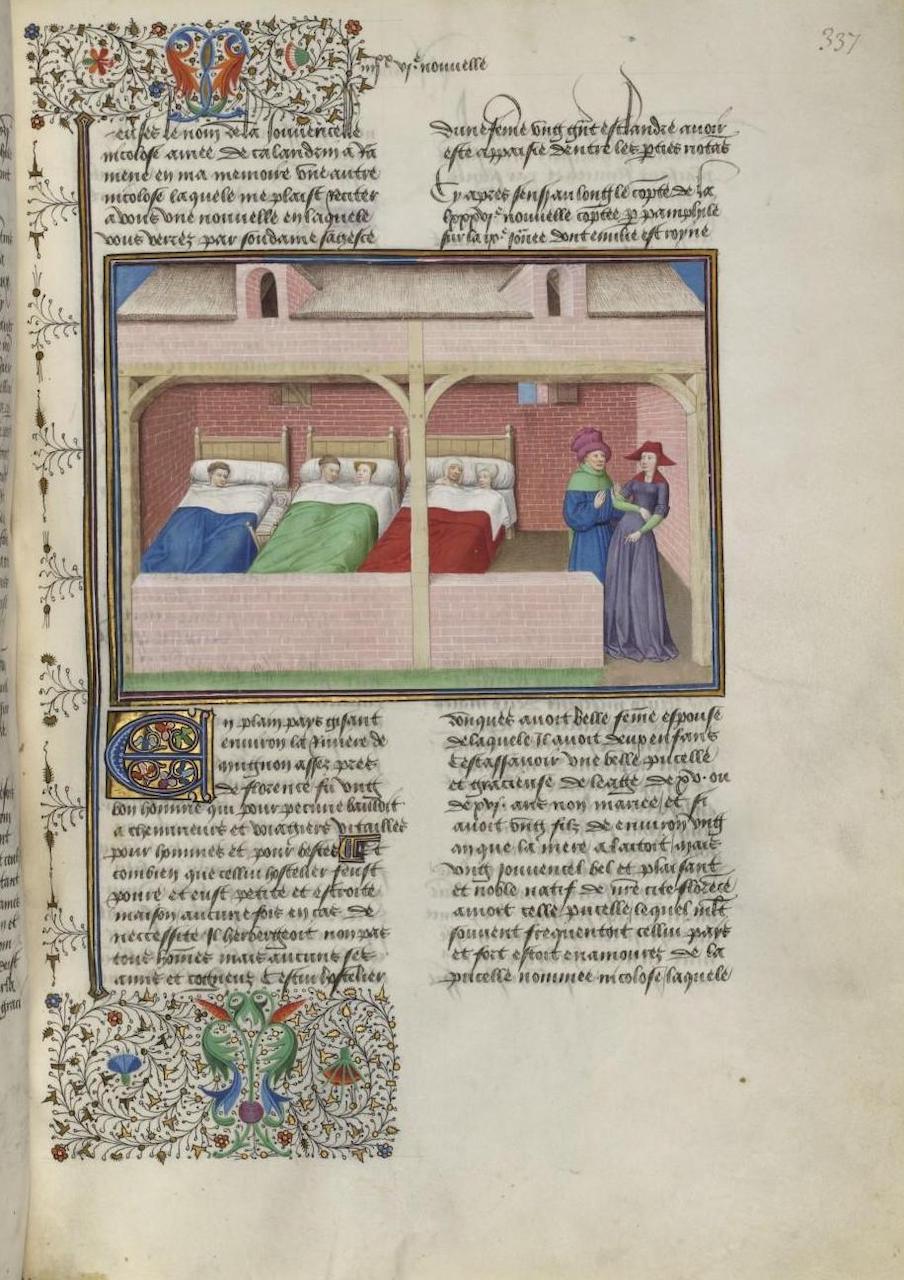 337
iiii^xx vi^e nouuelle
-euses le nom de la Jouuencelle
nicolose amee de calandrin a Ra
mene en ma memoire vne autre
nicolose laquele me plaist reciter
a vous vne nouuelle en laquele
vous verrez par soudaine sagesce
dune feme vng gñt esclandre auoir
este appaisie dentre les pties notãs
Cy apres sensu au long le compte de la
lxxxvj^e nouuelle comptee p pamphile
sur la ix^e Jõnee dont emilie est royne
En plain pays gisant
enuiron la Riuiere de
mugnon assez pres
de florence fu vng
bon homme qui pour pecune bailloit
a chemineurs et viatgiers vitailles
pour hommes et pour bestes Et
combien que cellui hostelier feust
poure et eust petite et estroite
maison aucune fois en cas de
neccessite Il herbergeoit non pas
tous hõmes mais aucuns ses
amis et cogneuz Cestui hostelier
donques auoit belle feme espouse
de laquele Il auoit deux enfans
Cestassauoir vne belle pucelle
et gracieuse de leage de xv. ou
de xvj. ans non mariee et si
auoit vng filz de enuiron vng
an que la mere alaitoit mais
vng Jouuencel bel et plaisant
et noble natif de nr̃e cite florẽce
amoit celle pucelle lequel mlt
souuent frequentoit cellui pays
et fort estoit enamourez de la
pucelle nommee nicolose laquele